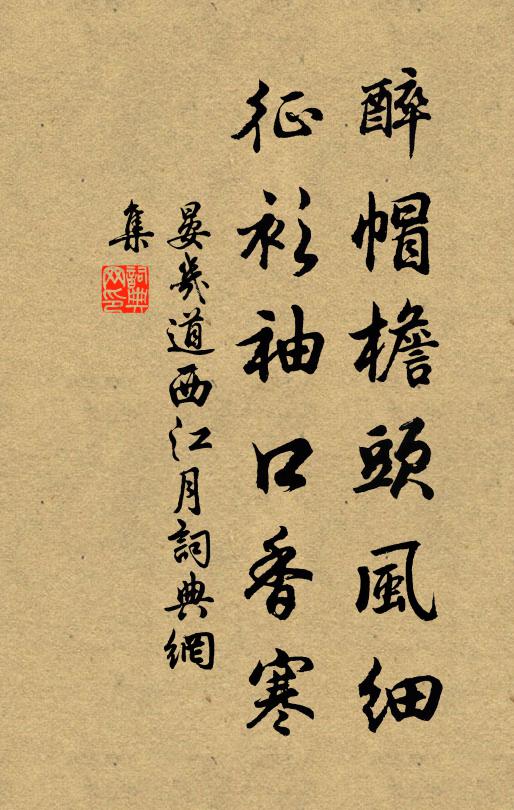 醉帽檐頭風細
征衫袖口香寒
晏幾道西江月詞典網
集
詞典
网印